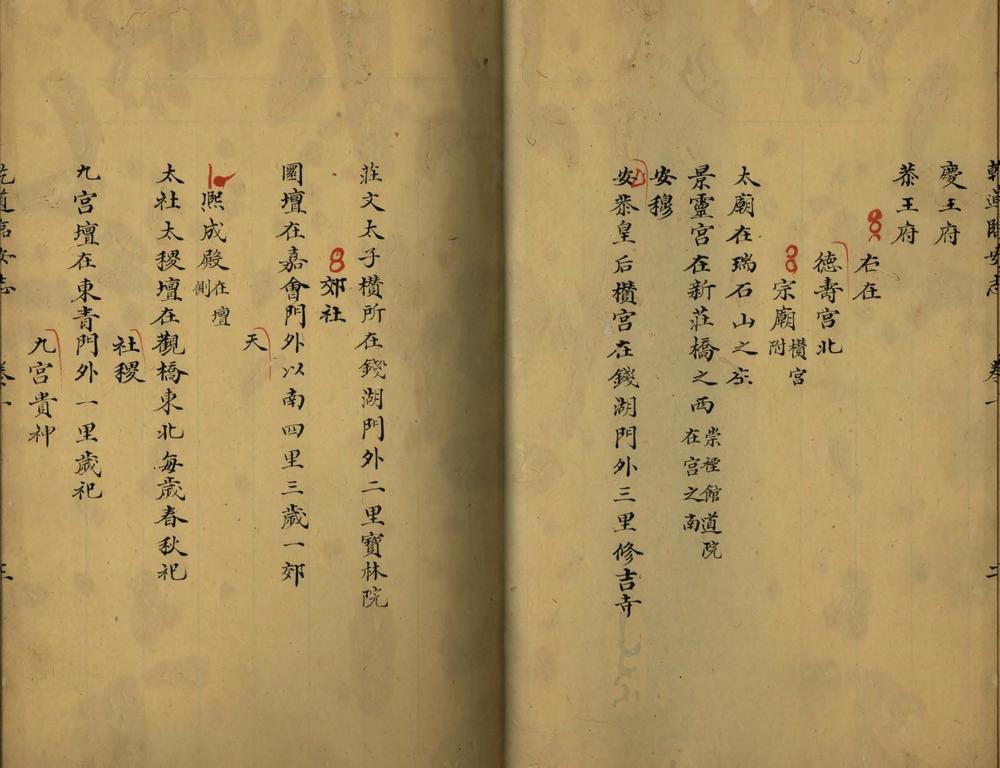 乾道臨安志 卷 二
慶王府
恭王府
右在
德壽宮北
宗廟欑宮附
太廟在瑞石山之左
景靈宮在新莊橋之西崇禋館道院在宮之南
安穆
安恭皇后欑宮在錢湖門外三里修吉寺
莊文太子欑所在錢湖門外二里寶林院
郊社
圜壇在嘉會門外以南四里三歲一郊
天
熈成殿在壇側
太社太稷壇在觀橋東北每歲春秋祀
社稷
九宮壇在東青門外一里歲祀
九宮貴神
乾道臨安志 卷一 三